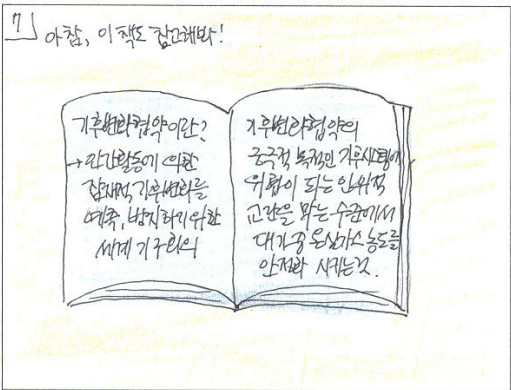 7
아참, 이 책도 참고해봐!
기후변화협약이란?
→ 인간활동에 의한
잠재적 기후변화를
예측, 방지하기 위한
세계 기구회의
기후변화협약의
궁극적 목적인 기후시스템에
위협이 되는 인위적
교란을 막는 수준에서
대기중 온실가스 농도를
안정화 시키는것.